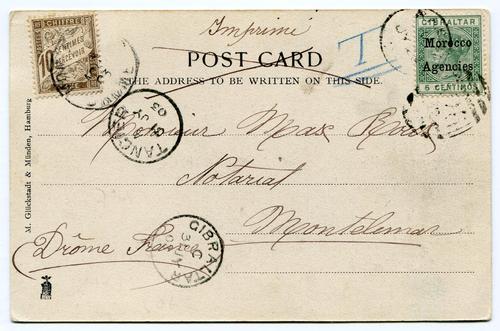 Imprimé
POST CARD
THE ADDRESS TO BE WRITTEN ON THIS SIDE.
CHIFFRE
10 CENTIMES
A PERCEVOIR
T
GIBRALTAR
Morocco
Agencies
5 CENTIMOS
TANGIER
C
JY 4
03
Monsieur Max
Notariat
Montelimar
Drôme France
GIBRALTAR
C
M. Glückstadt & Münden, Hamburg